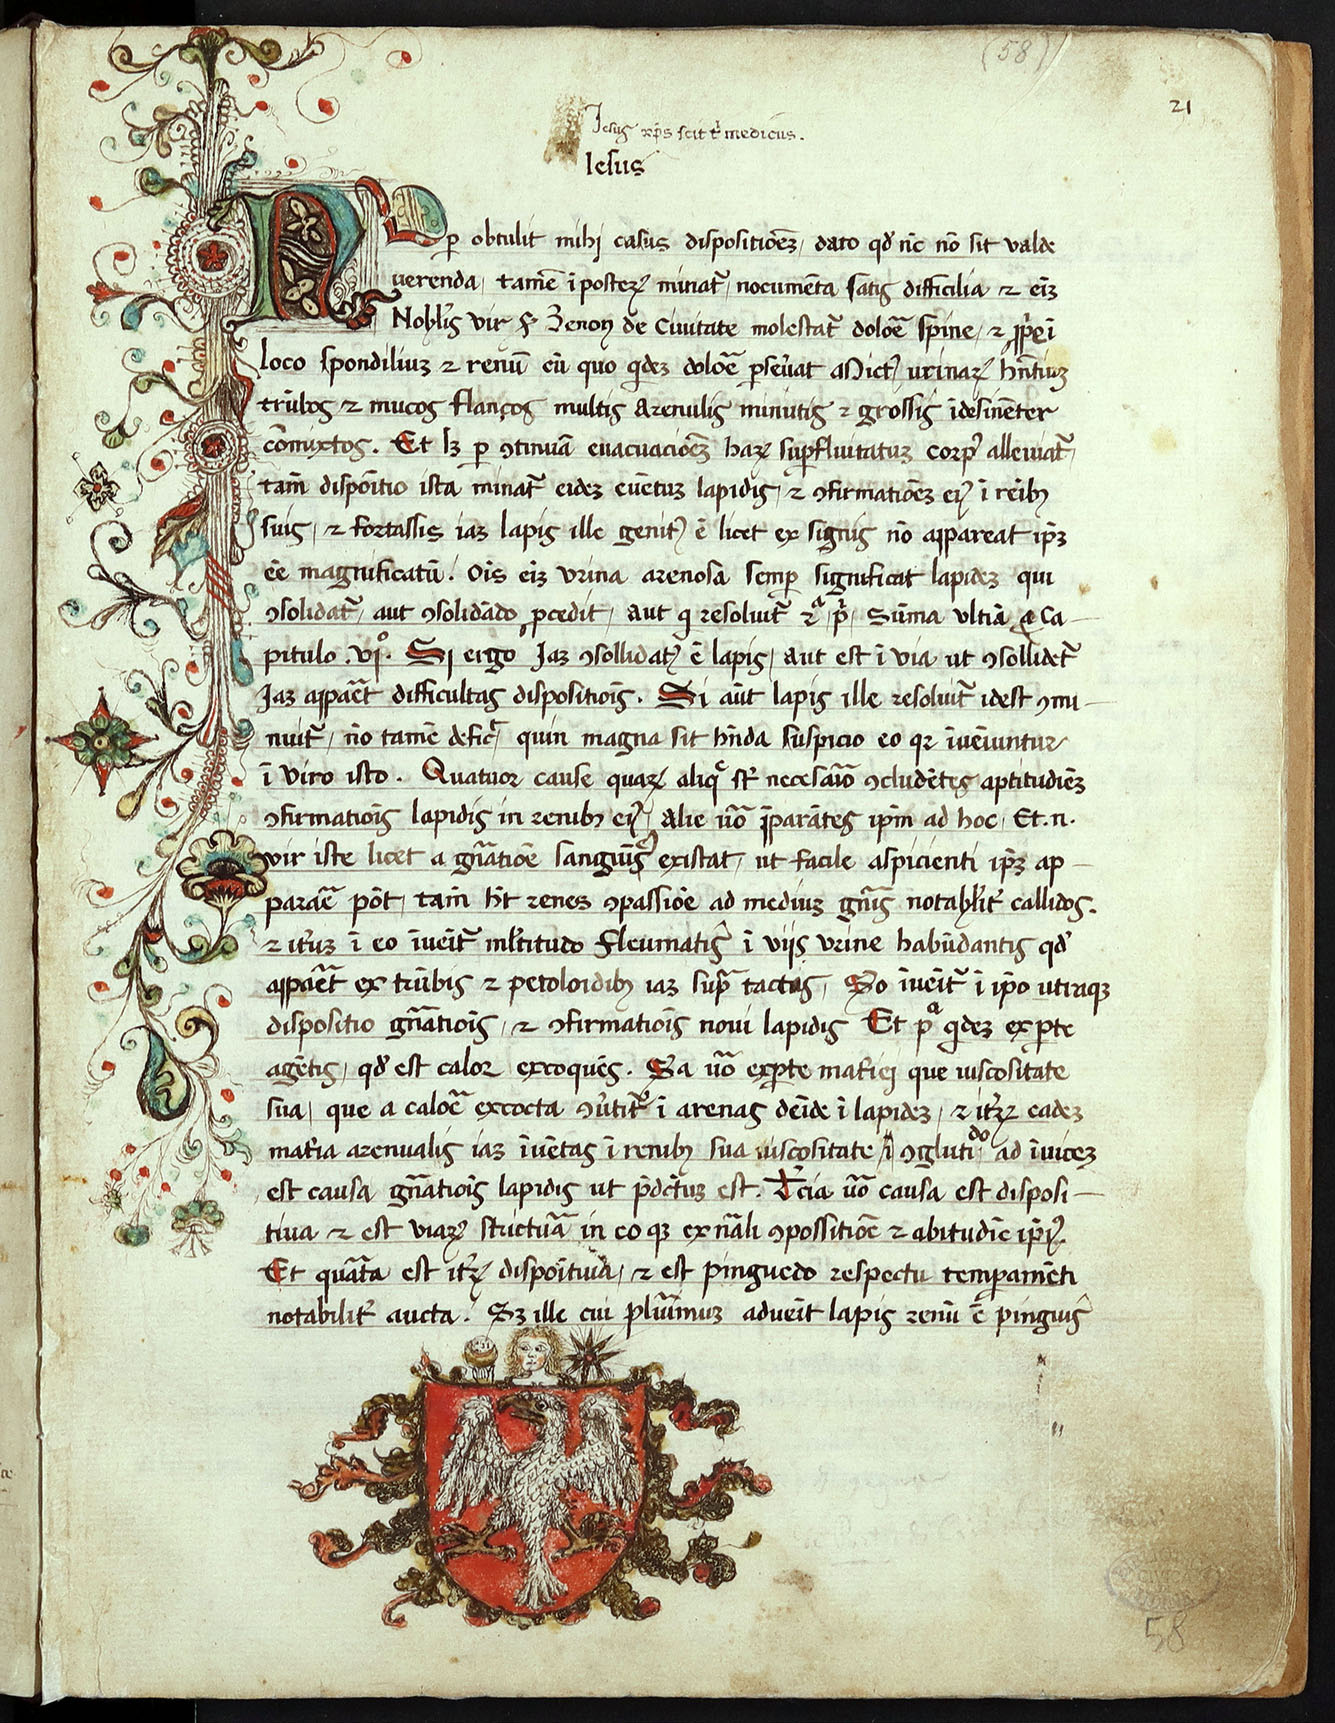 (58)
21
Iesus xp̃s scit t̃ medicus.
Iesus
NVp obtulit mihj casus dispositiõeȝ, dato qđ nc̃ nõ sit valde
uerenda, tamẽ ĩposteꝝ minat̃, nocumẽta satis difficilia ⁊ eiȝ
Nobl̃is vir ẜ Zenoɲ de Ciuitate molestat̃ dolõe spine, ⁊
loco spondiliuȝ ⁊ renũ cũ quo qdeȝ dolõe pseũat mictꝰ urinaꝝ hñtiuȝ
trũbos ⁊ mucos flanços multis arenulis minutis ⁊ grossis ĩdesinẽter
cõmixtos. Et lȝ p ꝯtinuã euacuaciõeȝ haꝝ supfluitatuȝ corpꝰ alleuiat̃,
tam̃ dispõitio ista minat̃ eideȝ euẽtuȝ lapidis, ⁊ ꝯfirmatiõeȝ eiꝰ ĩ reĩbȝ
suis, ⁊ fortassis iaȝ lapis ille genitꝰ ẽ licet ex signis nõ appareat ip̃ȝ
eẽ magnificatũ. Oĩs eiȝ vrina arenosa semp significat lapideȝ qui
ꝯsolidat̃, aut ꝯsolidãdo pcedit, aut q resoluit̃ sũma vltiã Ca-
pitulo .vjº. Sj ergo Jaȝ ꝯsollidatꝰ ẽ lapis, aut est ĩ via ut ꝯsollidet̃
Jaȝ appãet difficultas dispositiõis. Si aũt lapis ille resoluit̃ idest ꝯmi-
nuit̃, nõ tamẽ quin magna sit hñda suspicio eo qꝛ ĩueĩuntur
ĩ viro isto. Quatuor cause quaꝝ aliq̃ st̃ necesãrio ꝯcludẽtes aptitudiẽȝ
ꝯfirmatiõis lapidis in renibȝ eiꝰ, Alie ũo p̃parãtes ip̃m ad hoc, Et.n.
vir iste licet a gñatiõe sanguis̃ existat, ut facile aspicienti ip̃ȝ ap-
parãe põt, tam̃ ht̃ renes ꝯpassiõe ad mediuȝ gñis notabl̃r callidos.
⁊ itꝰȝ ĩ eo ĩueĩt̃ ml̃titudo fleumatis̃ ĩ viis vrine habũdantis qđ
appãet ex trũbis ⁊ petoloidibȝ iaȝ sup̃ tactas, So ĩueĩt̃ ĩ ip̃o utraqȝ
dispositio gñatiõis, ⁊ ꝯfirmatiõis noui lapidis Et pª qdeȝ ex pte
agẽtis, qđ est calor excoquẽs. Sa ũo expte matiej que uiscositate
sua, que a calõe excocta ꝯũtit̃ ĩ arenas deĩde ĩ lapideȝ, ⁊ itȝꝝ eadeȝ
mat̃ia arenualis iaȝ ĩuẽtas ĩ renibȝ sua uiscositate ꝯglutĩdo ad ĩuiceȝ
est causa gñatiõis lapidis ut p̃dc̃tuȝ est. T̃cia ũo causa est disposi-
tiua ⁊ est viaꝝ strictuã in eo qȝ ex nãli ꝯpossitiõe ⁊ abitudĩe ip̃iꝰ.
Et quãta est itȝꝝ dispõitiua, ⁊ est pinguedo respectu tempamẽti
notabilit̃ aucta. Sȝ ille cui plũimuȝ adueĩt lapis renũ ẽ pinguis̃
58